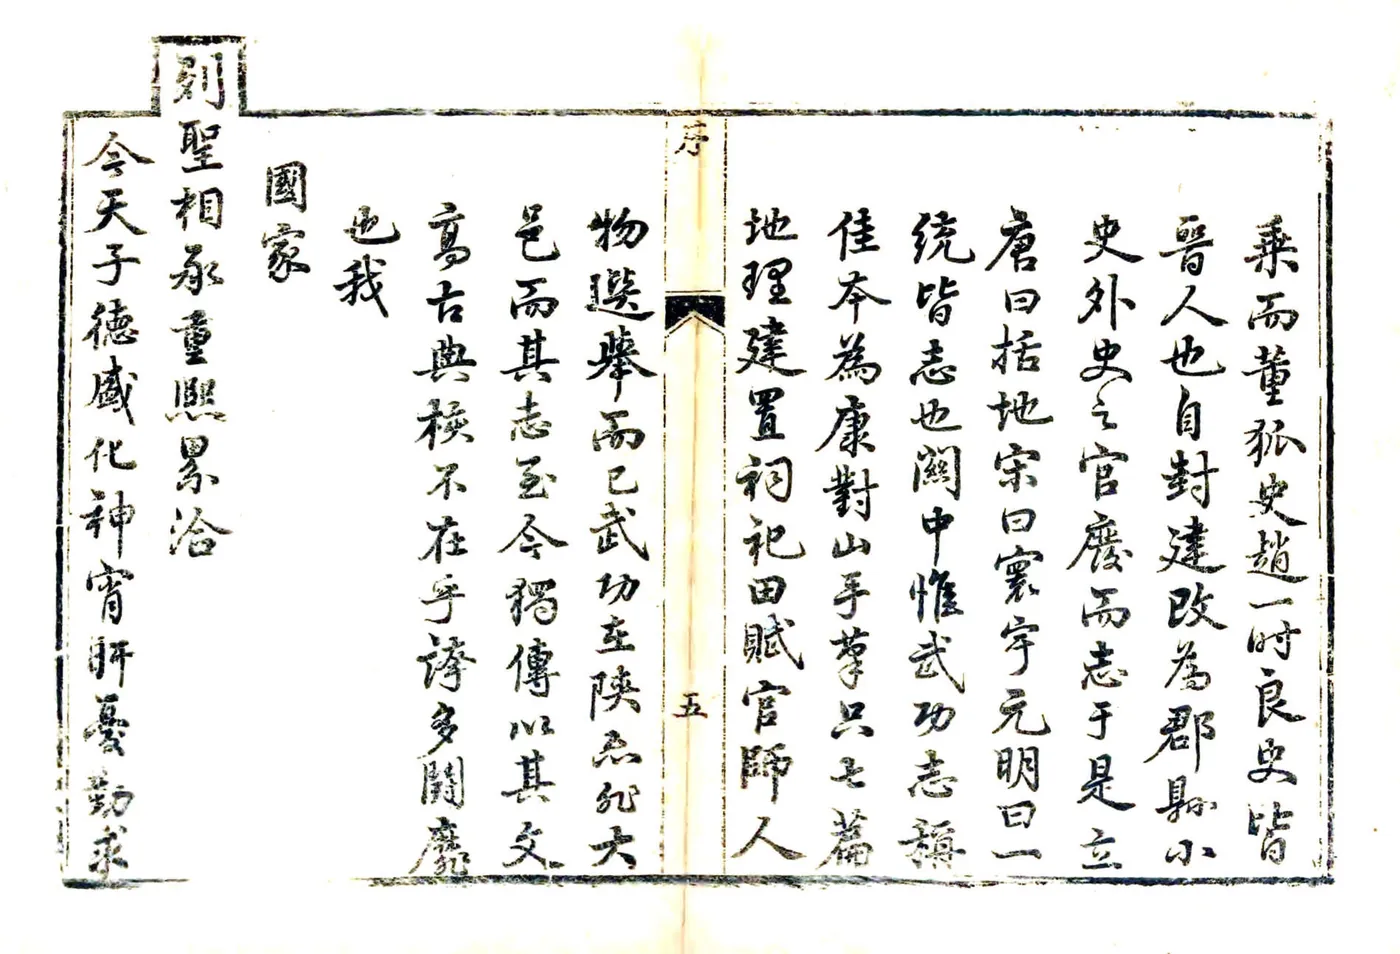 乘而董狐史趙一时良史皆
晉人也自封建改為郡縣小
史外史之官廢而志于是立
唐曰括地宋曰寰宇元明曰一
統皆志也關中惟武功志稱
佳本為康對山手筆只七篇
地理建置祠祀田賦官師人
序
五
物選舉而已武功在陝亦非大
邑而其志至今獨傳以其文
高古典核不在乎誇多鬪靡
也我
國家
列聖相承重熙累洽
今天子德盛化神宵旰憂勤求